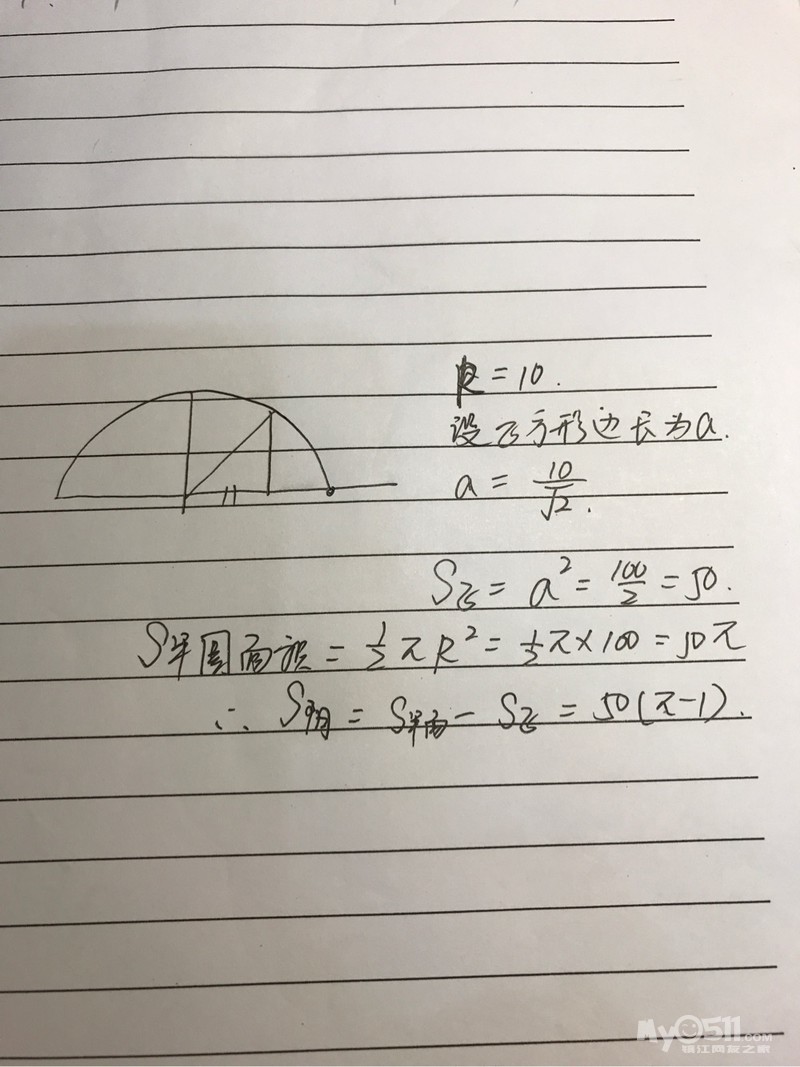 R = 10.
设正方形边长为a.
a = 10/√2.
S正 = a² = 100/2 = 50.
S半圆面积 = 1/2 π R² = 1/2 π × 100 = 50π
∴ S阴 = S半面 - S正 = 50(π-1).
My0511.COM
镇江网友之家